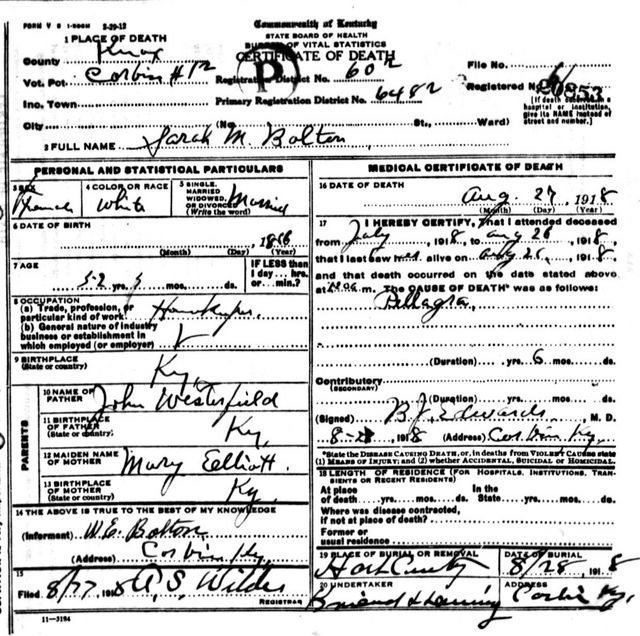 FORM V S 1-500M 8-29-12
Commonwealth of Kentucky
STATE BOARD OF HEALTH
BUREAU OF VITAL STATISTICS
CERTIFICATE OF DEATH
1 PLACE OF DEATH
County Knox
Vot. Pct. Corbin #12
Ino. Town
City
Registration District No. 602
Primary Registration District No. 6482
(No. St., Ward)
File No.
Registered No. 61
20853
[If death occurred in a hospital or institution, give its NAME instead of street and number.]
2 FULL NAME Sarah M. Bolton
PERSONAL AND STATISTICAL PARTICULARS
3 SEX Female
4 COLOR OR RACE White
5 SINGLE, MARRIED WIDOWED, OR DIVORCED (Write the word) Married
6 DATE OF BIRTH
, 1866
(Month) (Day) (Year)
7 AGE
52 yrs. 5 mos. ds.
IF LESS than 1 day... hrs. or... min.?
8 OCCUPATION
(a) Trade, profession, or particular kind of work
(b) General nature of industry business or establishment in which employed (or employer)
9 BIRTHPLACE (State or country) Ky.
PARENTS
10 NAME OF FATHER John Westerfield
11 BIRTHPLACE OF FATHER (State or country) Ky.
12 MAIDEN NAME OF MOTHER Mary Eelliott.
13 BIRTHPLACE OF MOTHER (State or country) Ky.
14 THE ABOVE IS TRUE TO THE BEST OF MY KNOWLEDGE
(Informant) W.E. Bolton
(Address) Corbin Ky.
15
Filed 8/27 1918 A.S. Wilder
REGISTRAR
11-3184
MEDICAL CERTIFICATE OF DEATH
16 DATE OF DEATH
Aug 27, 1918
(Month) (Day) (Year)
17 I HEREBY CERTIFY, That I attended deceased
from July, 1918, to Aug 26, 1918,
that I last saw alive on Aug 26, 1918,
and that death occurred on the date stated above
at m. The CAUSE OF DEATH* was as follows:
Pellagra,
(Duration) yrs. 6 mos. ds.
Contributory (SECONDARY)
(Duration) yrs. mos. ds.
(Signed) B.J. Edwards, M. D.
8-28, 1918 (Address) Corbin Ky.
*State the DISEASE CAUSING DEATH, or, in deaths from VIOLENT CAUSES state (1) MEANS OF INJURY; and (2) whether ACCIDENTAL, SUICIDAL or HOMICIDAL.
18 LENGTH OF RESIDENCE (FOR HOSPITALS, INSTITUTIONS, TRANSIENTS OR RECENT RESIDENTS)
At place of death yrs. mos. ds. In the State yrs. mos. ds.
Where was disease contracted, if not at place of death?
Former or usual residence
19 PLACE OF BURIAL OR REMOVAL
DATE OF BURIAL
8/28, 1918
20 UNDERTAKER
ADDRESS
Corbin Ky.